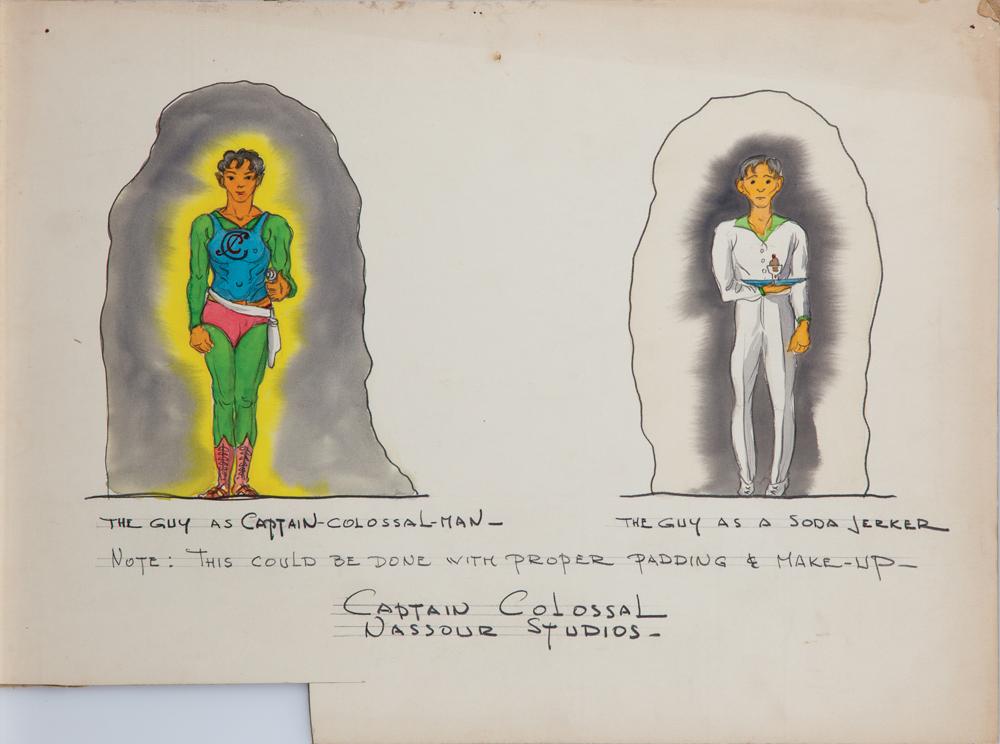 CC
THE GUY AS CAPTAIN-COLOSSAL-MAN-
THE GUY AS A SODA JERKER
NOTE: THIS COULD BE DONE WITH PROPER PADDING & MAKE-UP-
CAPTAIN COLOSSAL
NASSOUR STUDIOS-